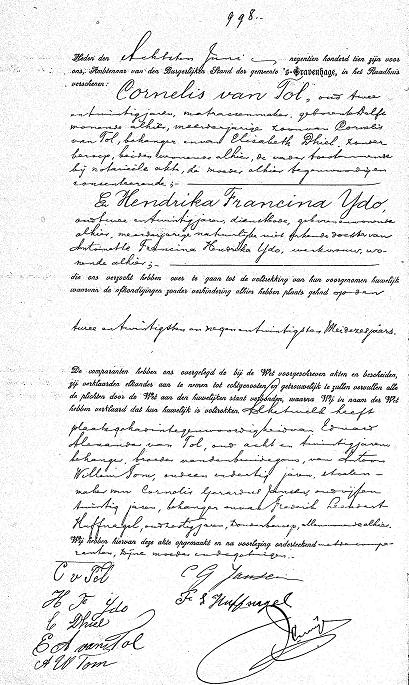 998.
Heden den Achtsten Juni negentien honderd tien zijn voor
ons, Ambtenaar van den Burgerlijken Stand der gemeente 's-Gravenhage, in het Raadhuis
verschenen:
Cornelis van Tol, oud twee
entwintig jaren, matrassenmaker, geboren te Delft
wonende alhier, meerderjarige zoon van Cornelis
van Tol, behanger en van Elizabeth Dhiel, zonder
beroep, beiden wonende alhier, de vader toestemmende
bij notariëele akte, de moeder alhier tegenwoordig en
consenteerende;
& Hendrika Francina Ydo,
oud twee entwintig jaren, dienstbode, geboren en wonende
alhier, meerderjarige natuurlijke niet erkende dochter van
Antonetta Francina Hendrika Ydo, werkvrouw, wo-
nende alhier;
die ons verzocht hebben over te gaan tot de voltrekking van hun voorgenomen huwelijk
waarvan de afkondigingen zonder verhindering alhier hebben plaats gehad op den
twee entwintigsten en negenentwintigsten Mei dezes jaars.
De comparanten hebben ons overgelegd de bij de Wet voorgeschreven akten en bescheiden,
zij verklaarden elkander aan te nemen tot echtgenooten en getrouwelijk te zullen vervullen alle
de plichten door de Wet aan den huwelijken staat verbonden, waarna Wij in naam der Wet
hebben verklaard dat hun huwelijk is voltrokken. Hetwelk heeft
plaats gehad in tegenwoordigheid van Eduard
Alexander van Tol, oud acht en twintig jaren
behanger, broeder van den bruidegom, van Antoon
Willem Tom, oud een en dertig jaren, stoelen-
maker van Cornelis Gerardus Jansen, oud vijf en
twintig jaren, behanger en van Frederik Leendert
Huffnagel, oud zestig jaren, zonder beroep, allen wonende alhier.
Wij hebben hiervan deze akte opgemaakt en na voorlezing onderteekend met de compa-
ranten, bijne moeder en de getuigen.
C v Tol
C G Jansen
H F Ydo
Fr L Huffnagel
E Dhiel
E A van Tol
A W Tom